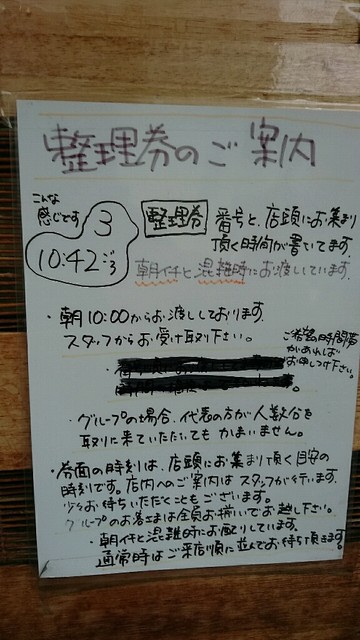 整理券のご案内
こんな
感じです
3
10:42ごろ
整理券 番号と、店頭にお集まり
頂く時間が書いてます。
朝イチと混雑時にお渡ししています。
・朝10:00からお渡ししております。
スタッフからお受け取り下さい。
ご希望の時間帯
があれば
お申しつけ下さい。
・グループの場合、代表の方が人数分を
取りに来ていただいてもかまいません。
・券面の時刻は、店頭にお集まり頂く目安の
時刻です。店内へのご案内はスタッフが行います。
少々お待ちいただくこともございます。
グループのお客さまは全員お揃いでお越し下さい。
・朝イチと混雑時にお配りしています。
通常時はご来店順に並んでお待ち頂きます。